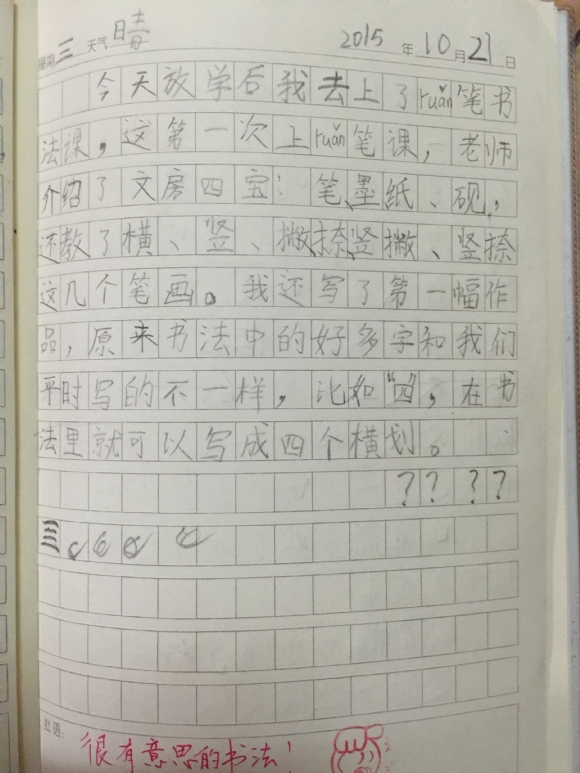 星期三 天气 晴 2015年10月21日
今天放学后我去上了ruǎn笔书
法课，这第一次上ruǎn笔课，老师
介绍了文房四宝：笔、墨纸、砚，
还教了横、竖、撇、捺、竖撇、竖捺
这几个笔画。我还写了第一幅作
品，原来书法中的好多字和我们
平时写的不一样，比如“四”，在书
法里就可以写成四个横划。
？？？？
批语：
很有意思的书法！